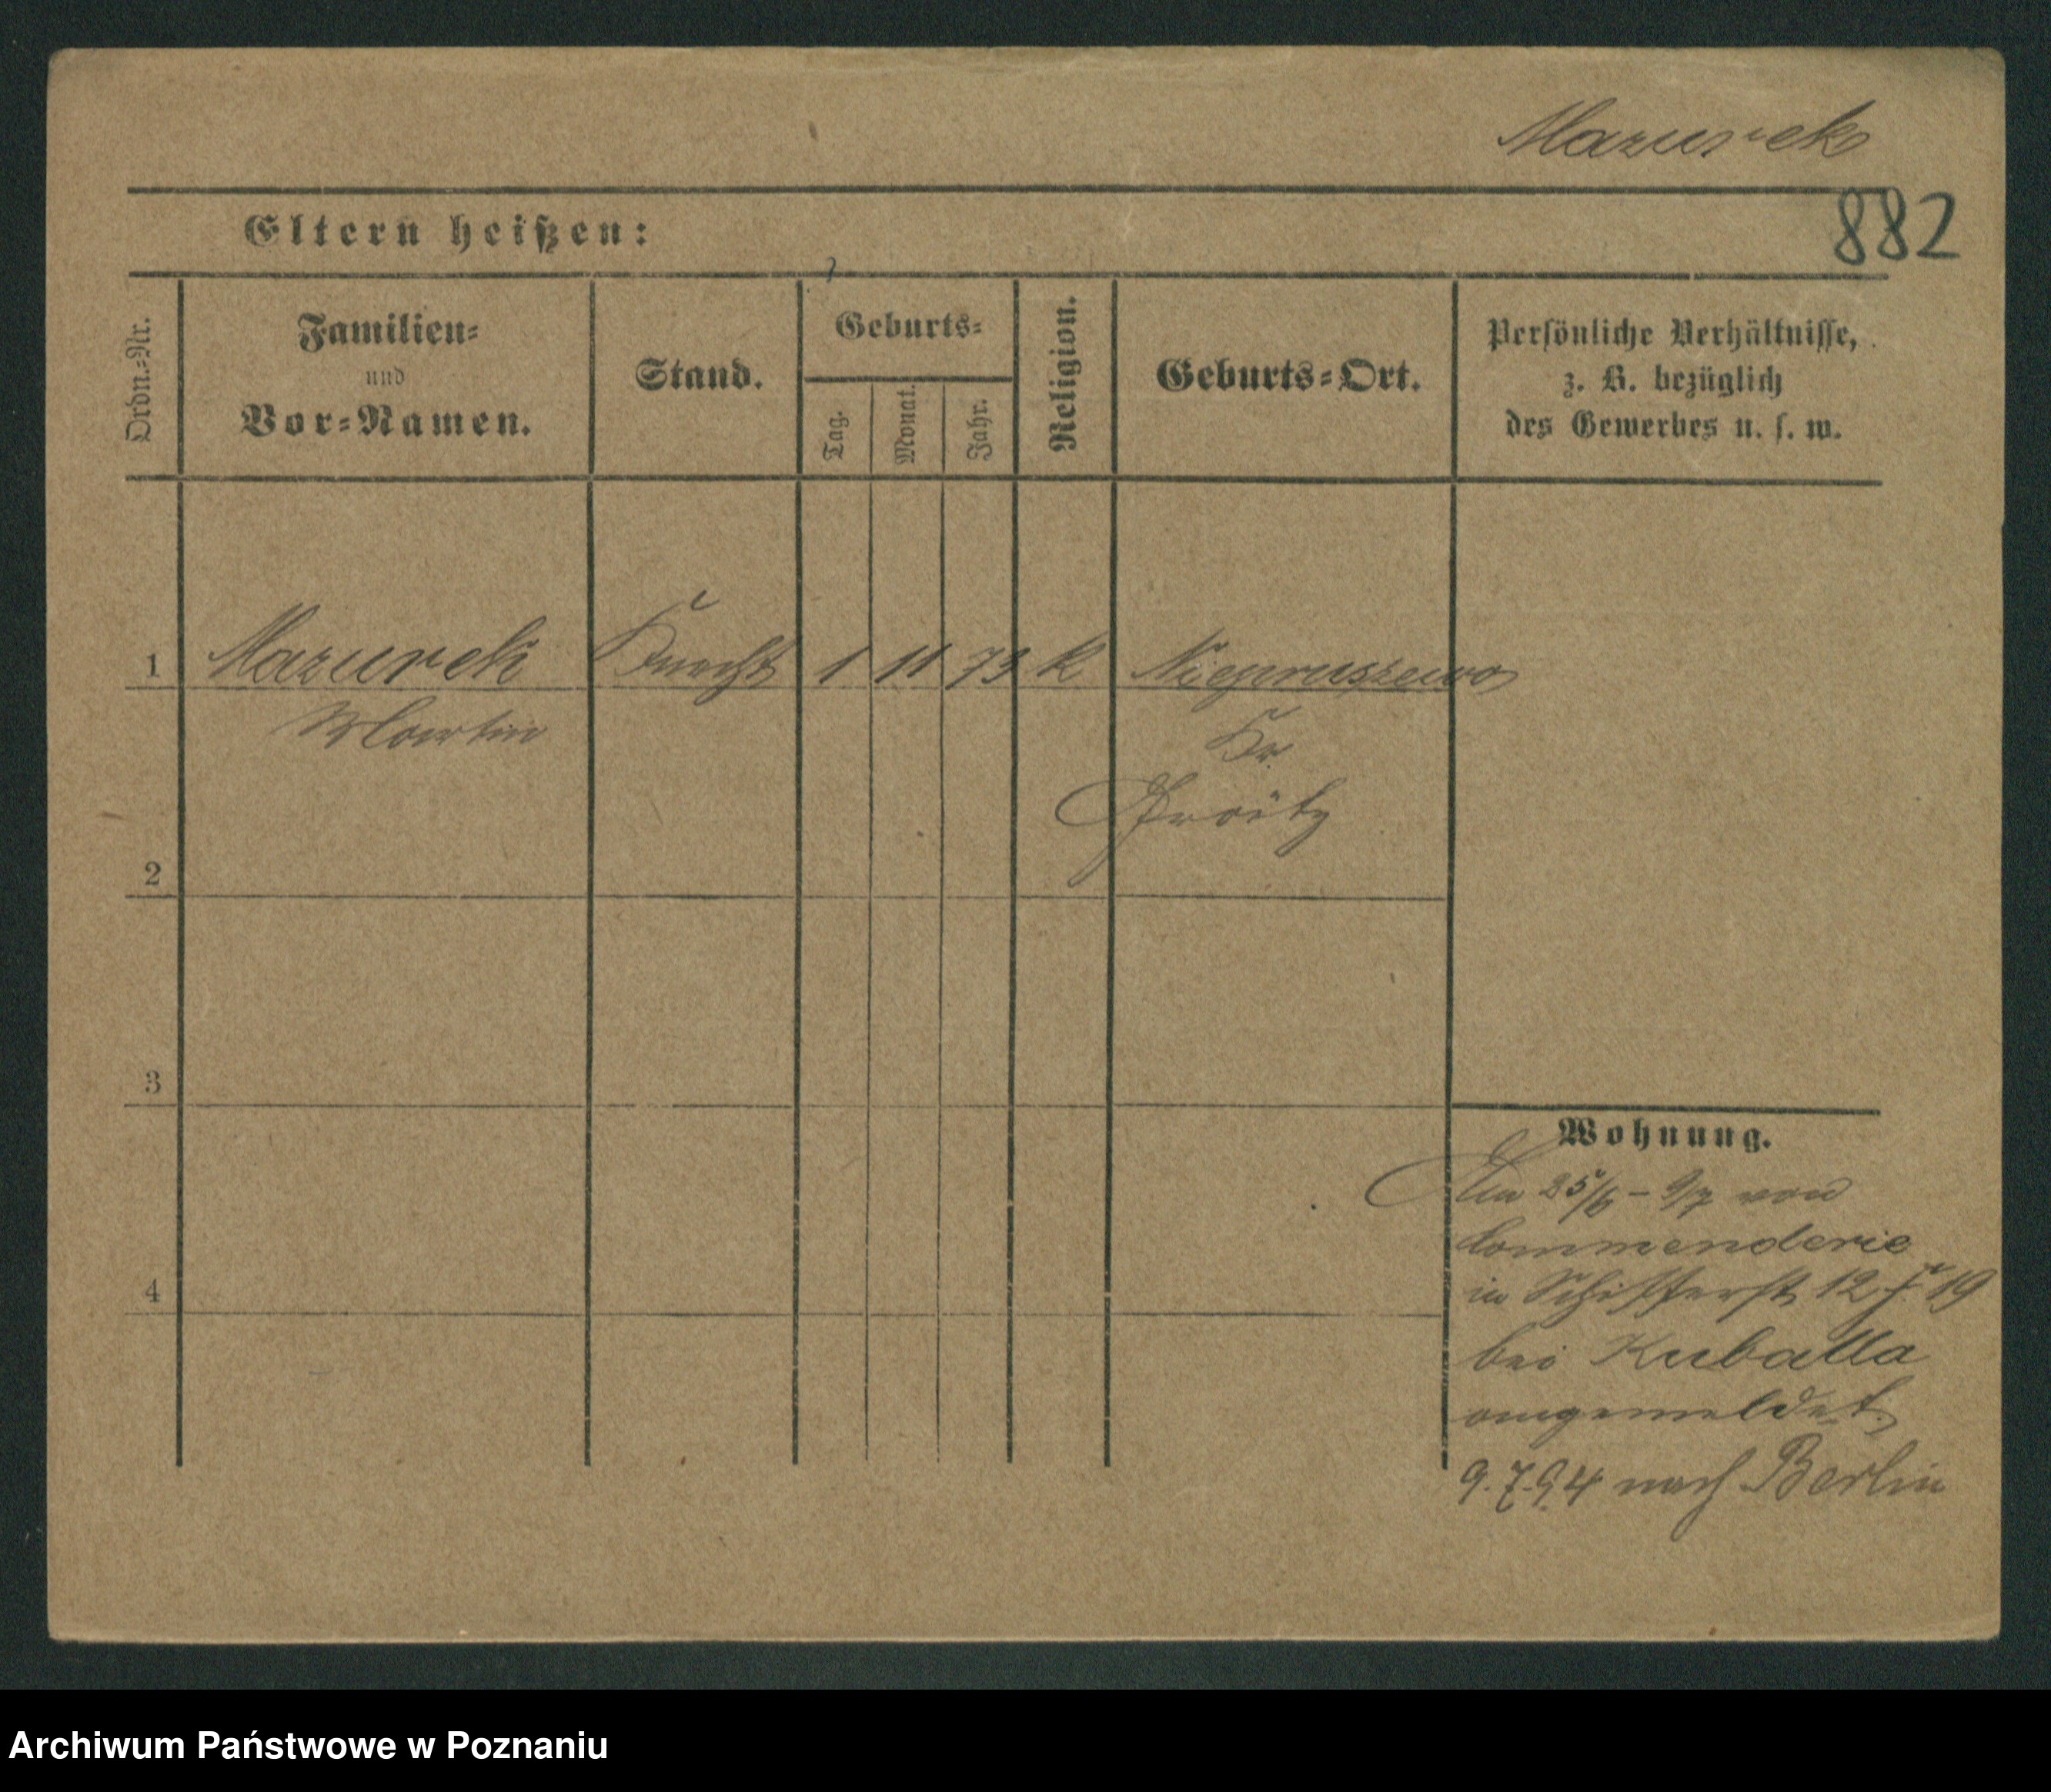 Mazurek
882
Eltern heißen:
Ordn.-Nr.
Familien-
und
Vor-Namen.
Stand.
Geburts-
Tag.
Monat.
Jahr.
Religion.
Geburts-Ort.
Persönliche Verhältnisse,
z. B. bezüglich
des Gewerbes u. s. w.
1 Mazurek Knecht 1 11 73 K Niepruszewo
Martin Kr.
2
3
4
Wohnung.
25/6 - 9/7 von
Commenderie
in Schifferst 12 19
bei Kuballa
angemeldet.
9.7.94 nach Berlin
Archiwum Państwowe w Poznaniu